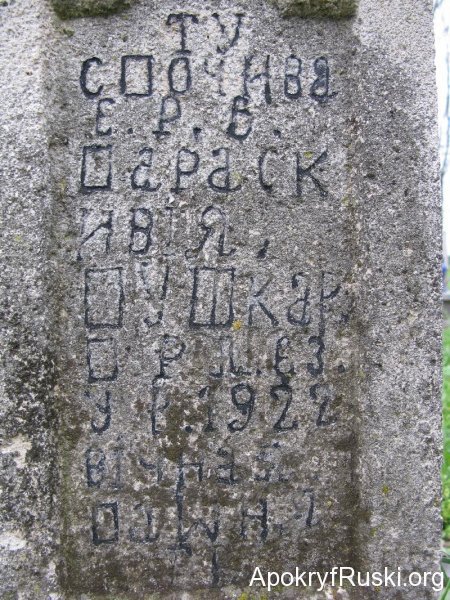 ТУ
СПОЧИВА
Е. Р. Б.
ПАРАСК
ИВІЯ,
ПУШКАР.
П Р Л. 63.
У Р. 1922
ВІЧНАЯ
ПАМ
ApokryfRuski.org